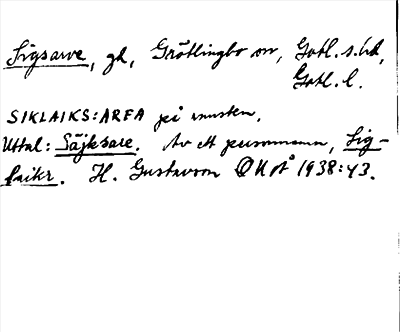 Sigsarve, gd, Grötlingbo sn, Gotl. s. hd,
Gotl. l.
SIKLAIKS:ARFA på runsten.
Uttal: Säjksare. Av ett personnamn, Sig-
laikr. H. Gustavson ONoÅ 1938:43.